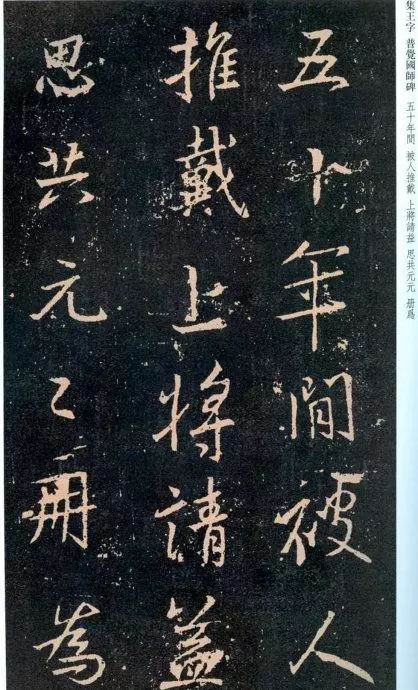 集王字 普覺國師碑 五十年間 被人推戴 上將請益 思共元元 册爲
五十年間被人
推戴上將請益
思共元〻冊為